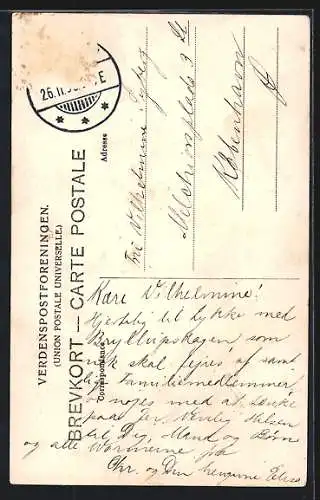 26.11.
E
VERDENSPOSTFORENINGEN.
(UNION POSTALE UNIVERSELLE)
BREVKORT — CARTE POSTALE
Adresse
Correspondance
Vilhelmine
3
København
K
Kære Vilhelmine!
Hjertelig til Lykke med
Bryllupsdagen som
nok skal fejres af samt
lige Familiemedlemmer
nøjes med at
Venlig Hilsen
til Dig, Mand og Børn
og alle fra
Chr. og Din hengivne